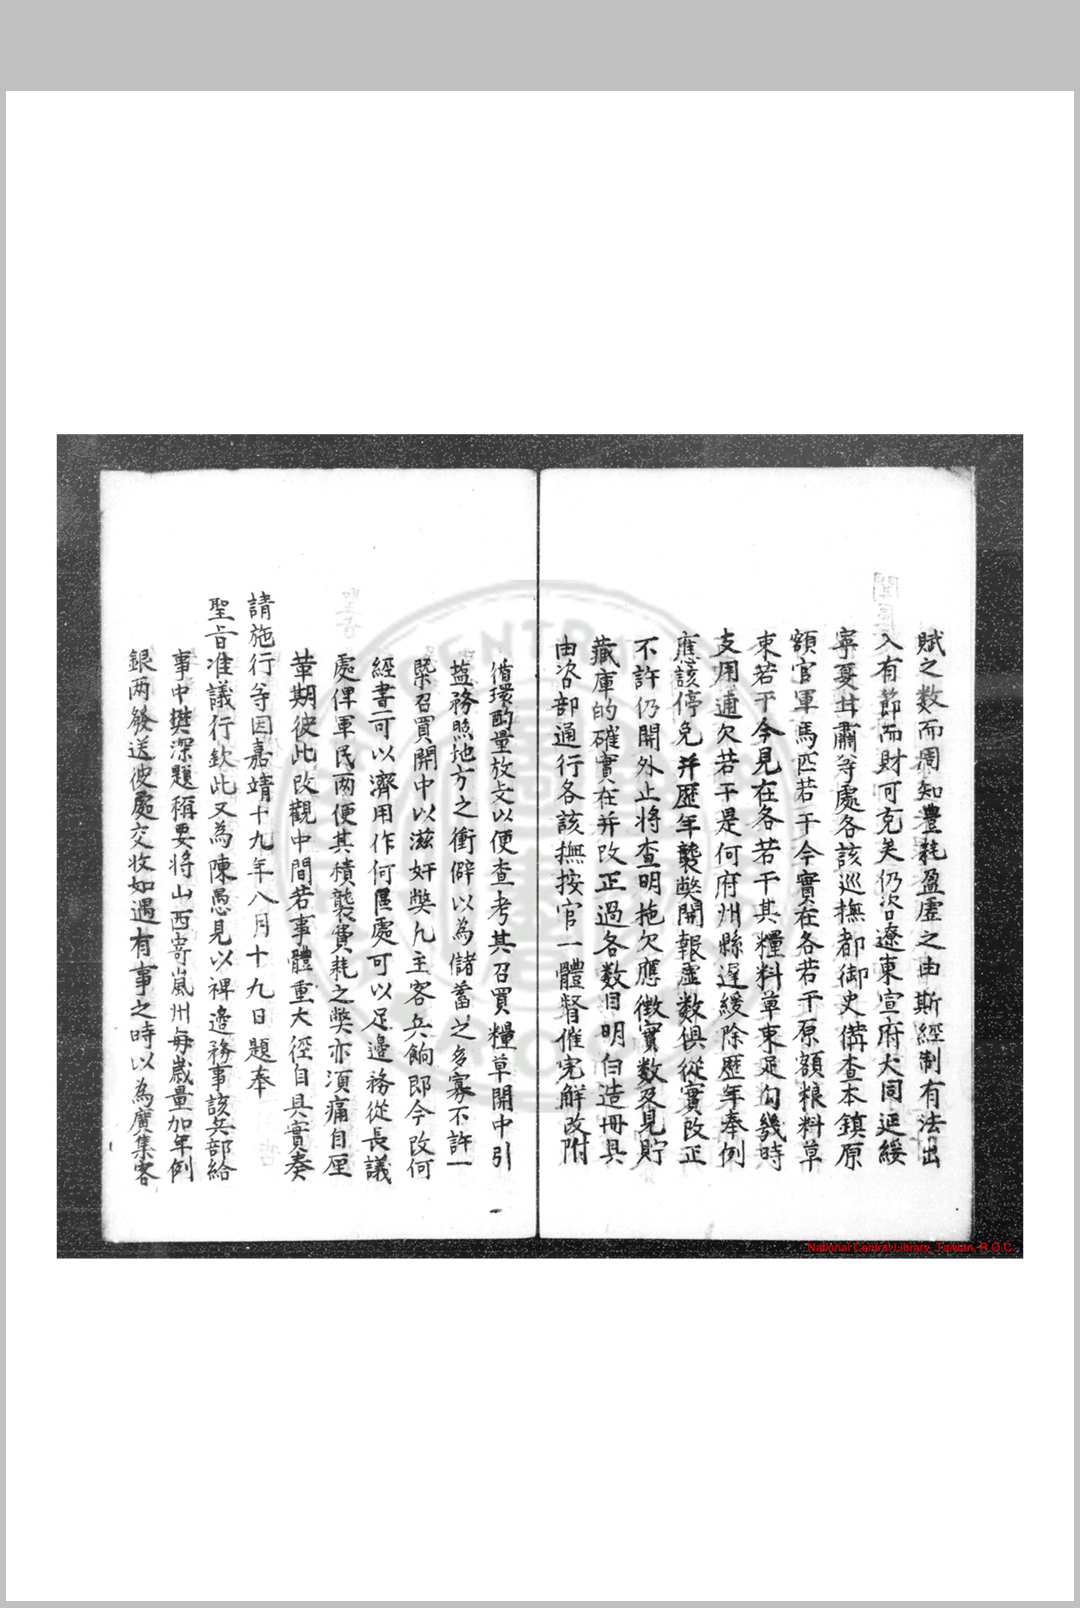 賦之数而周知豐耗盈虛之由斯經制有法出
入有節而財可克矣仍咨遼東宣府大同延綏
寧夏甘肅等處各該巡撫都御史備查本鎮原
額官軍馬匹若干今實在各若干原額粮料草
束若干今見在各若干其糧料草束足勾幾時
支用逋欠若干是何府州縣遲緩除歷年奉例
應該停免并歷年襲獘開報虛数俱從實改正
不許仍開外止將查明拖欠應徵實数及見貯
藏庫的確實在并改正過各数目明白造冊具
由咨部通行各該撫按官一體督催完解改附
循環酌量放支以便查考其召買糧草開中引
鹽務照地方之衝僻以為儲蓄之多寡不許一
槩召買開中以滋奸獘凡主客兵餉即今改何
經畫可以濟用作何區處可以足邊務從長議
處俾軍民两便其積襲實耗之獘亦湏痛自厘
革期彼此改觀中間若事體重大徑自具實奏
請施行等因嘉靖十九年八月十九日題奉
聖旨准議行欽此又為陳愚見以裨邊務事該兵部給
事中樊深題稱要將山西寄嵐州每歲量加年例
銀两發送彼處交收如遇有事之時以為廣集客
National Central Library, Taiwan, R.O.C.